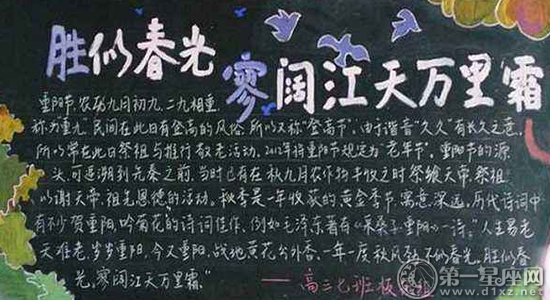 胜似春光
寥阔江天万里霜
重阳节,农历九月初九,二九相重,
称为"重九"民间在此日有登高的风俗,所以又称"登高节"。由于谐音"久久"有长久之意,
所以常在此日祭祖与推行敬老活动。2012年将重阳节规定为"老年节"。重阳节的源
头,可追溯到先秦之前,当时已有在秋九月农作物丰收之时祭飨天帝,祭祖,
以谢天帝、祖先恩德的活动。秋季是一年收获的黄金季节,寓意深远,历代诗词中
有不少贺重阳,咏菊花的诗词佳作,例如毛泽东著有《采桑子·重阳》一诗。"人生易老
天难老,岁岁重阳,今又重阳,战地黄花分外香。一年一度秋风劲,不似春光,胜似春
光,寥阔江天万里霜。"
——高三七班板
第一星座网
www.d1xz.net